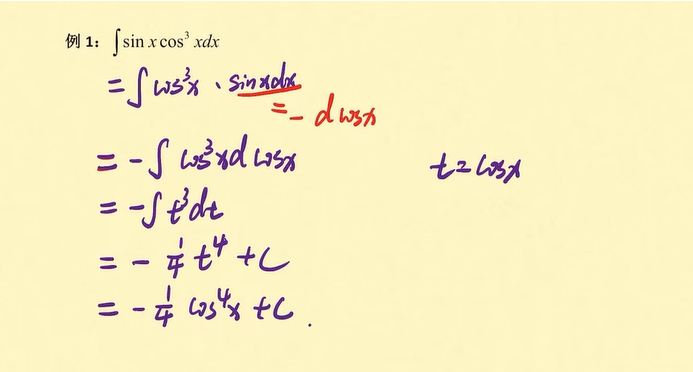 例 1：∫ sin x cos³ xdx
= ∫ cos³x · sinxdx
= - d cosx
= - ∫ cos³x d cosx
t = cosx
= - ∫ t³ dt
= - 1/4 t⁴ + C
= - 1/4 cos⁴x + C .